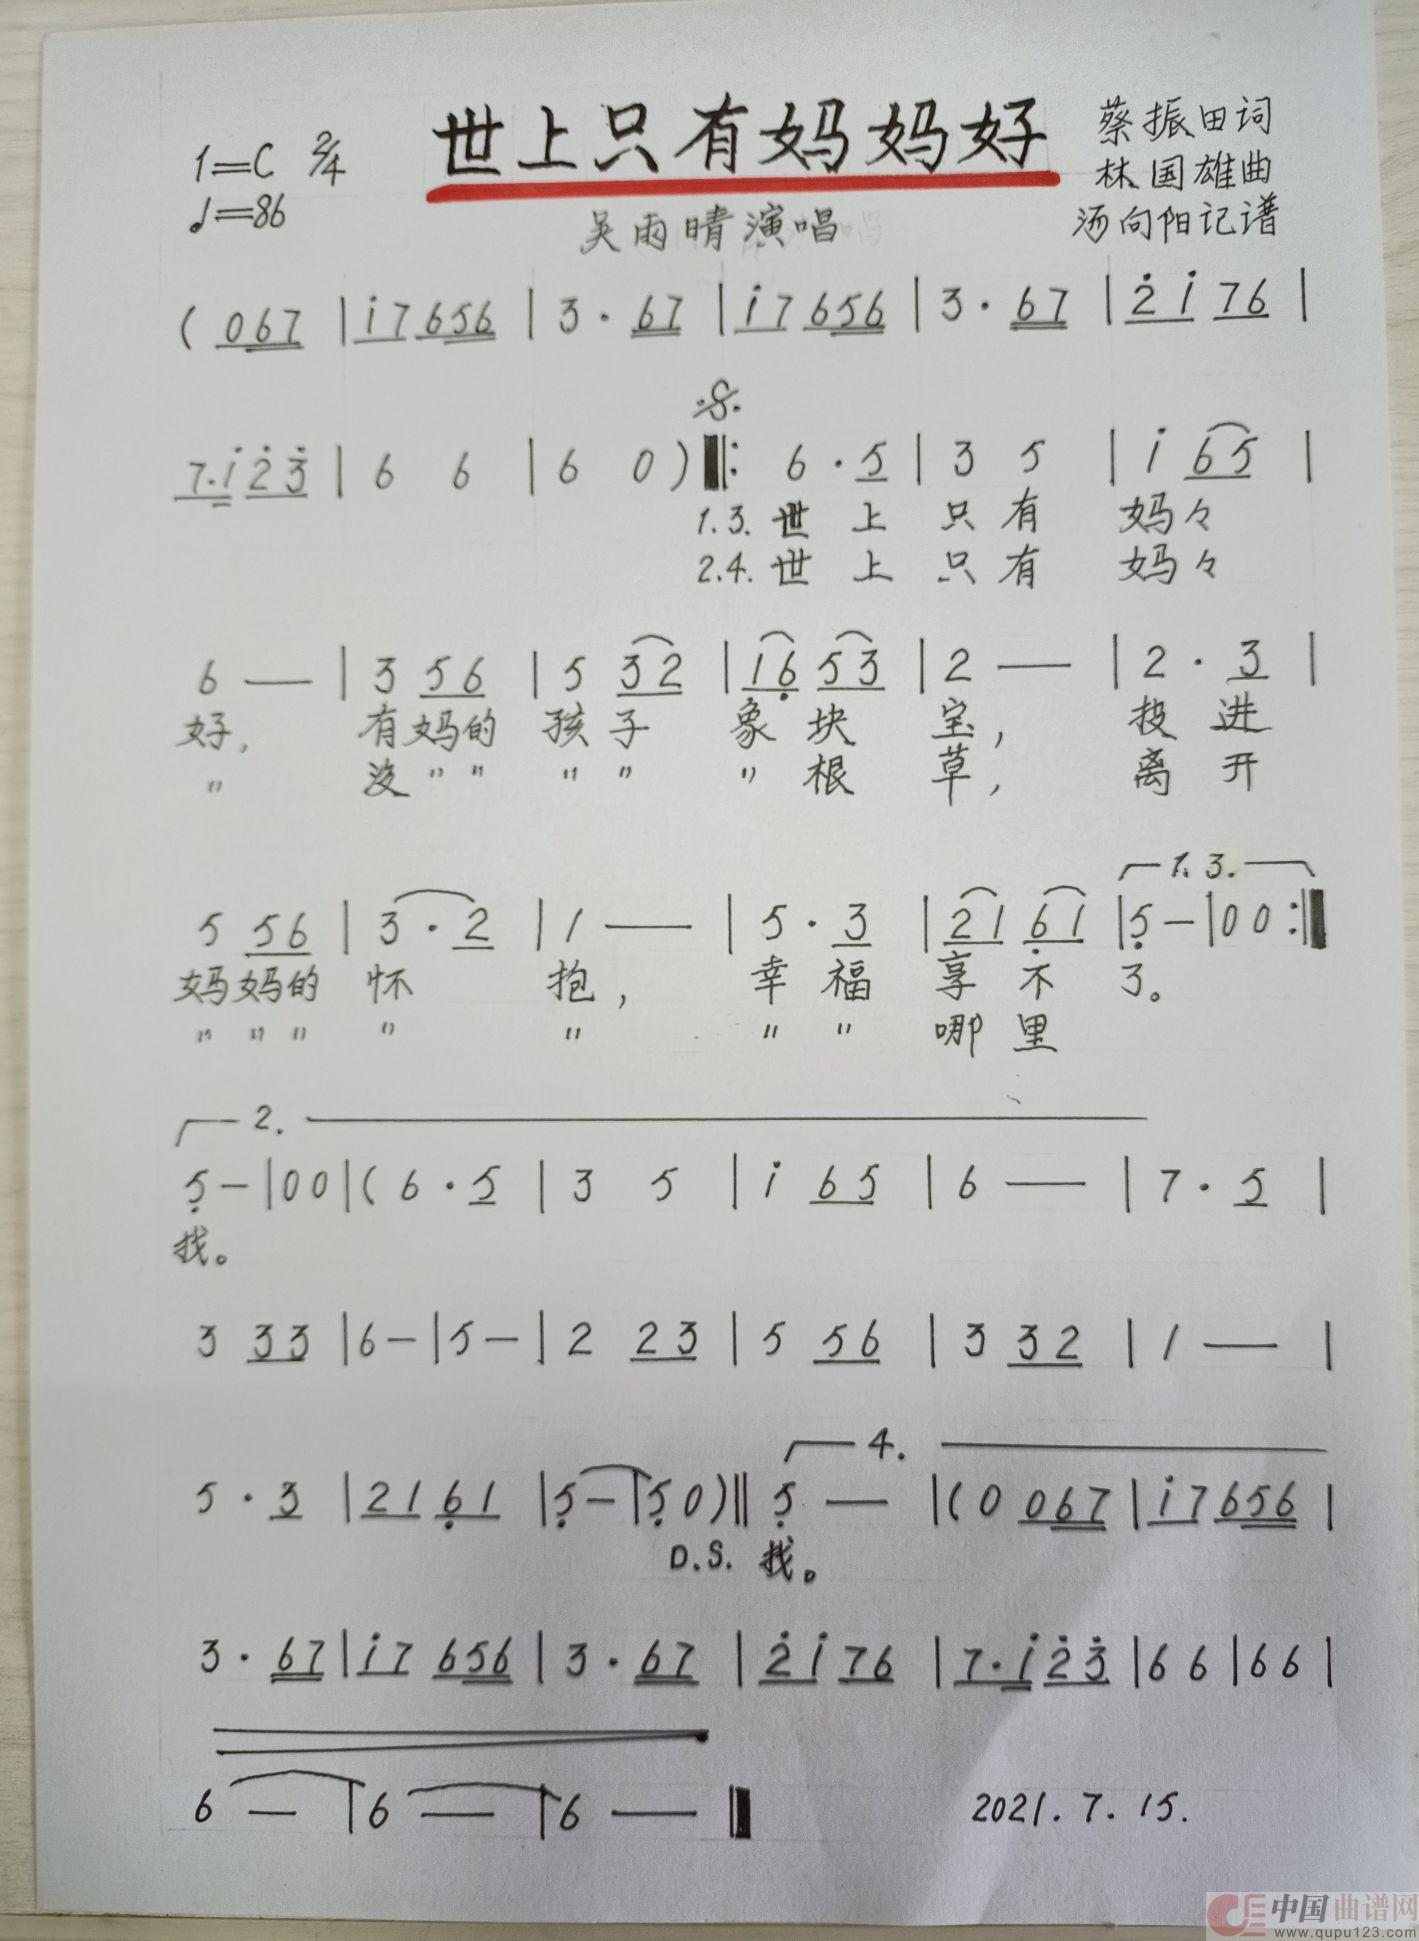 1=C 2/4 世上只有妈妈好 蔡振田词
♩=86 林国雄曲
吴雨晴演唱 汤向阳记谱
( 0 6 7 | i 7 6 5 6 | 3 · 6 7 | i 7 6 5 6 | 3 · 6 7 | 2̇ i 7 6 |
7 · i 2̇ 3̇ | 6 6 | 6 0 ) 𝄋 ‖: 6 · 5 | 3 5 | i 6 5 |
1.3. 世 上 只 有 妈々
2.4. 世 上 只 有 妈々
6 — | 3 5 6 | 5 3 2 | 1 6̣ 5 3 | 2 — | 2 · 3 |
好, 有妈的 孩子 象块 宝, 投进
〃 没〃〃 〃〃 〃根 草, 离开
1. 3.
5 5 6 | 3 · 2 | 1 — | 5 · 3 | 2 1 6̣ 1 | 5̣ — | 0 0 :‖
妈妈的 怀 抱, 幸福 享不 了。
〃〃〃 〃 〃 〃〃 哪里
2.
5̣ — | 0 0 | ( 6 · 5 | 3 5 | i 6 5 | 6 — | 7 · 5 |
找。
3 3 3 | 6 — | 5 — | 2 2 3 | 5 5 6 | 3 3 2 | 1 — |
4.
5 · 3 | 2 1 6̣ 1 | 5̣ — | 5̣ 0 ) ‖ 5̣ — | ( 0 0 6 7 | i 7 6 5 6 |
D.S. 找。
3 · 6 7 | i 7 6 5 6 | 3 · 6 7 | 2̇ i 7 6 | 7 · i 2̇ 3̇ | 6 6 | 6 6 |
6 — | 6 — | 6 — ‖ 2021. 7. 15.
中国曲谱网
www.qupu123.com